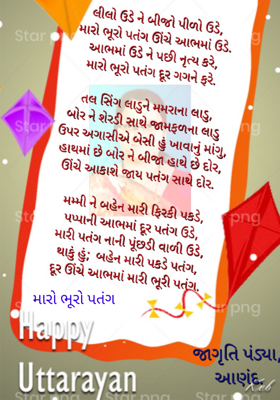 લીલો ઉડે ને બીજો પીળો ઉડે,
મારો ભૂરો પતંગ ઊંચે આભમાં ઉડે.
આભમાં ઉડે ને પછી નૃત્ય કરે,
મારો ભૂરો પતંગ દૂર ગગને ફરે.
તલ સિંગ લાડુને મમરાના લાડુ,
બોર ને શેરડી સાથે જામફળના લાડુ
ઉપર અગાસીએ બેસી હું ખાવાનું માંગુ,
હાથમાં છે બોર ને બીજા હાથે છે દોર,
ઊંચે આકાશે જાય પતંગ સાથે દોર.
મમ્મી ને બહેન મારી ફિરકી પકડે,
પપ્પાની આભમાં દૂર પતંગ ઉડે,
મારી પતંગ નાની પૂંછડી વાળી ઉડે,
થાકું હું; બહેન મારી પકડે પતંગ,
દૂર ઊંચે આભમાં મારી ભૂરી પતંગ.
મારો ભૂરો પતંગ
Happy
Uttarayan
જાગૃતિ પંડ્યા,
આણંદ.